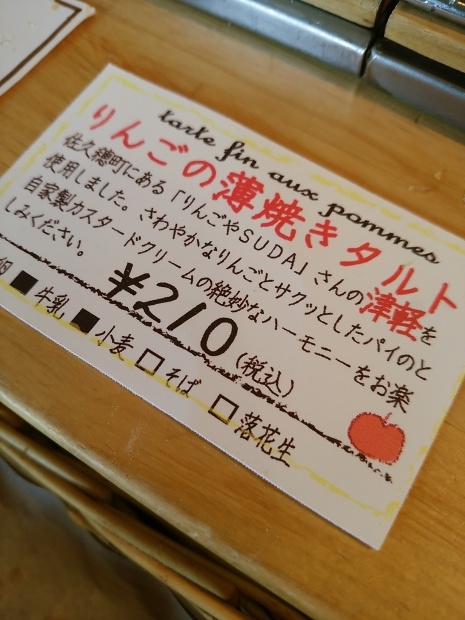 tarte fin aux pommes
りんごの薄焼きタルト
佐久穂町にある「りんごやSUDA」さんの津軽を
使用しました。さわやかなりんごとサクッとしたパイのと
自家製カスタードクリームの絶妙なハーモニーをお楽
しみください。
¥210(税込)
卵 ■牛乳 ■小麦 □そば □落花生